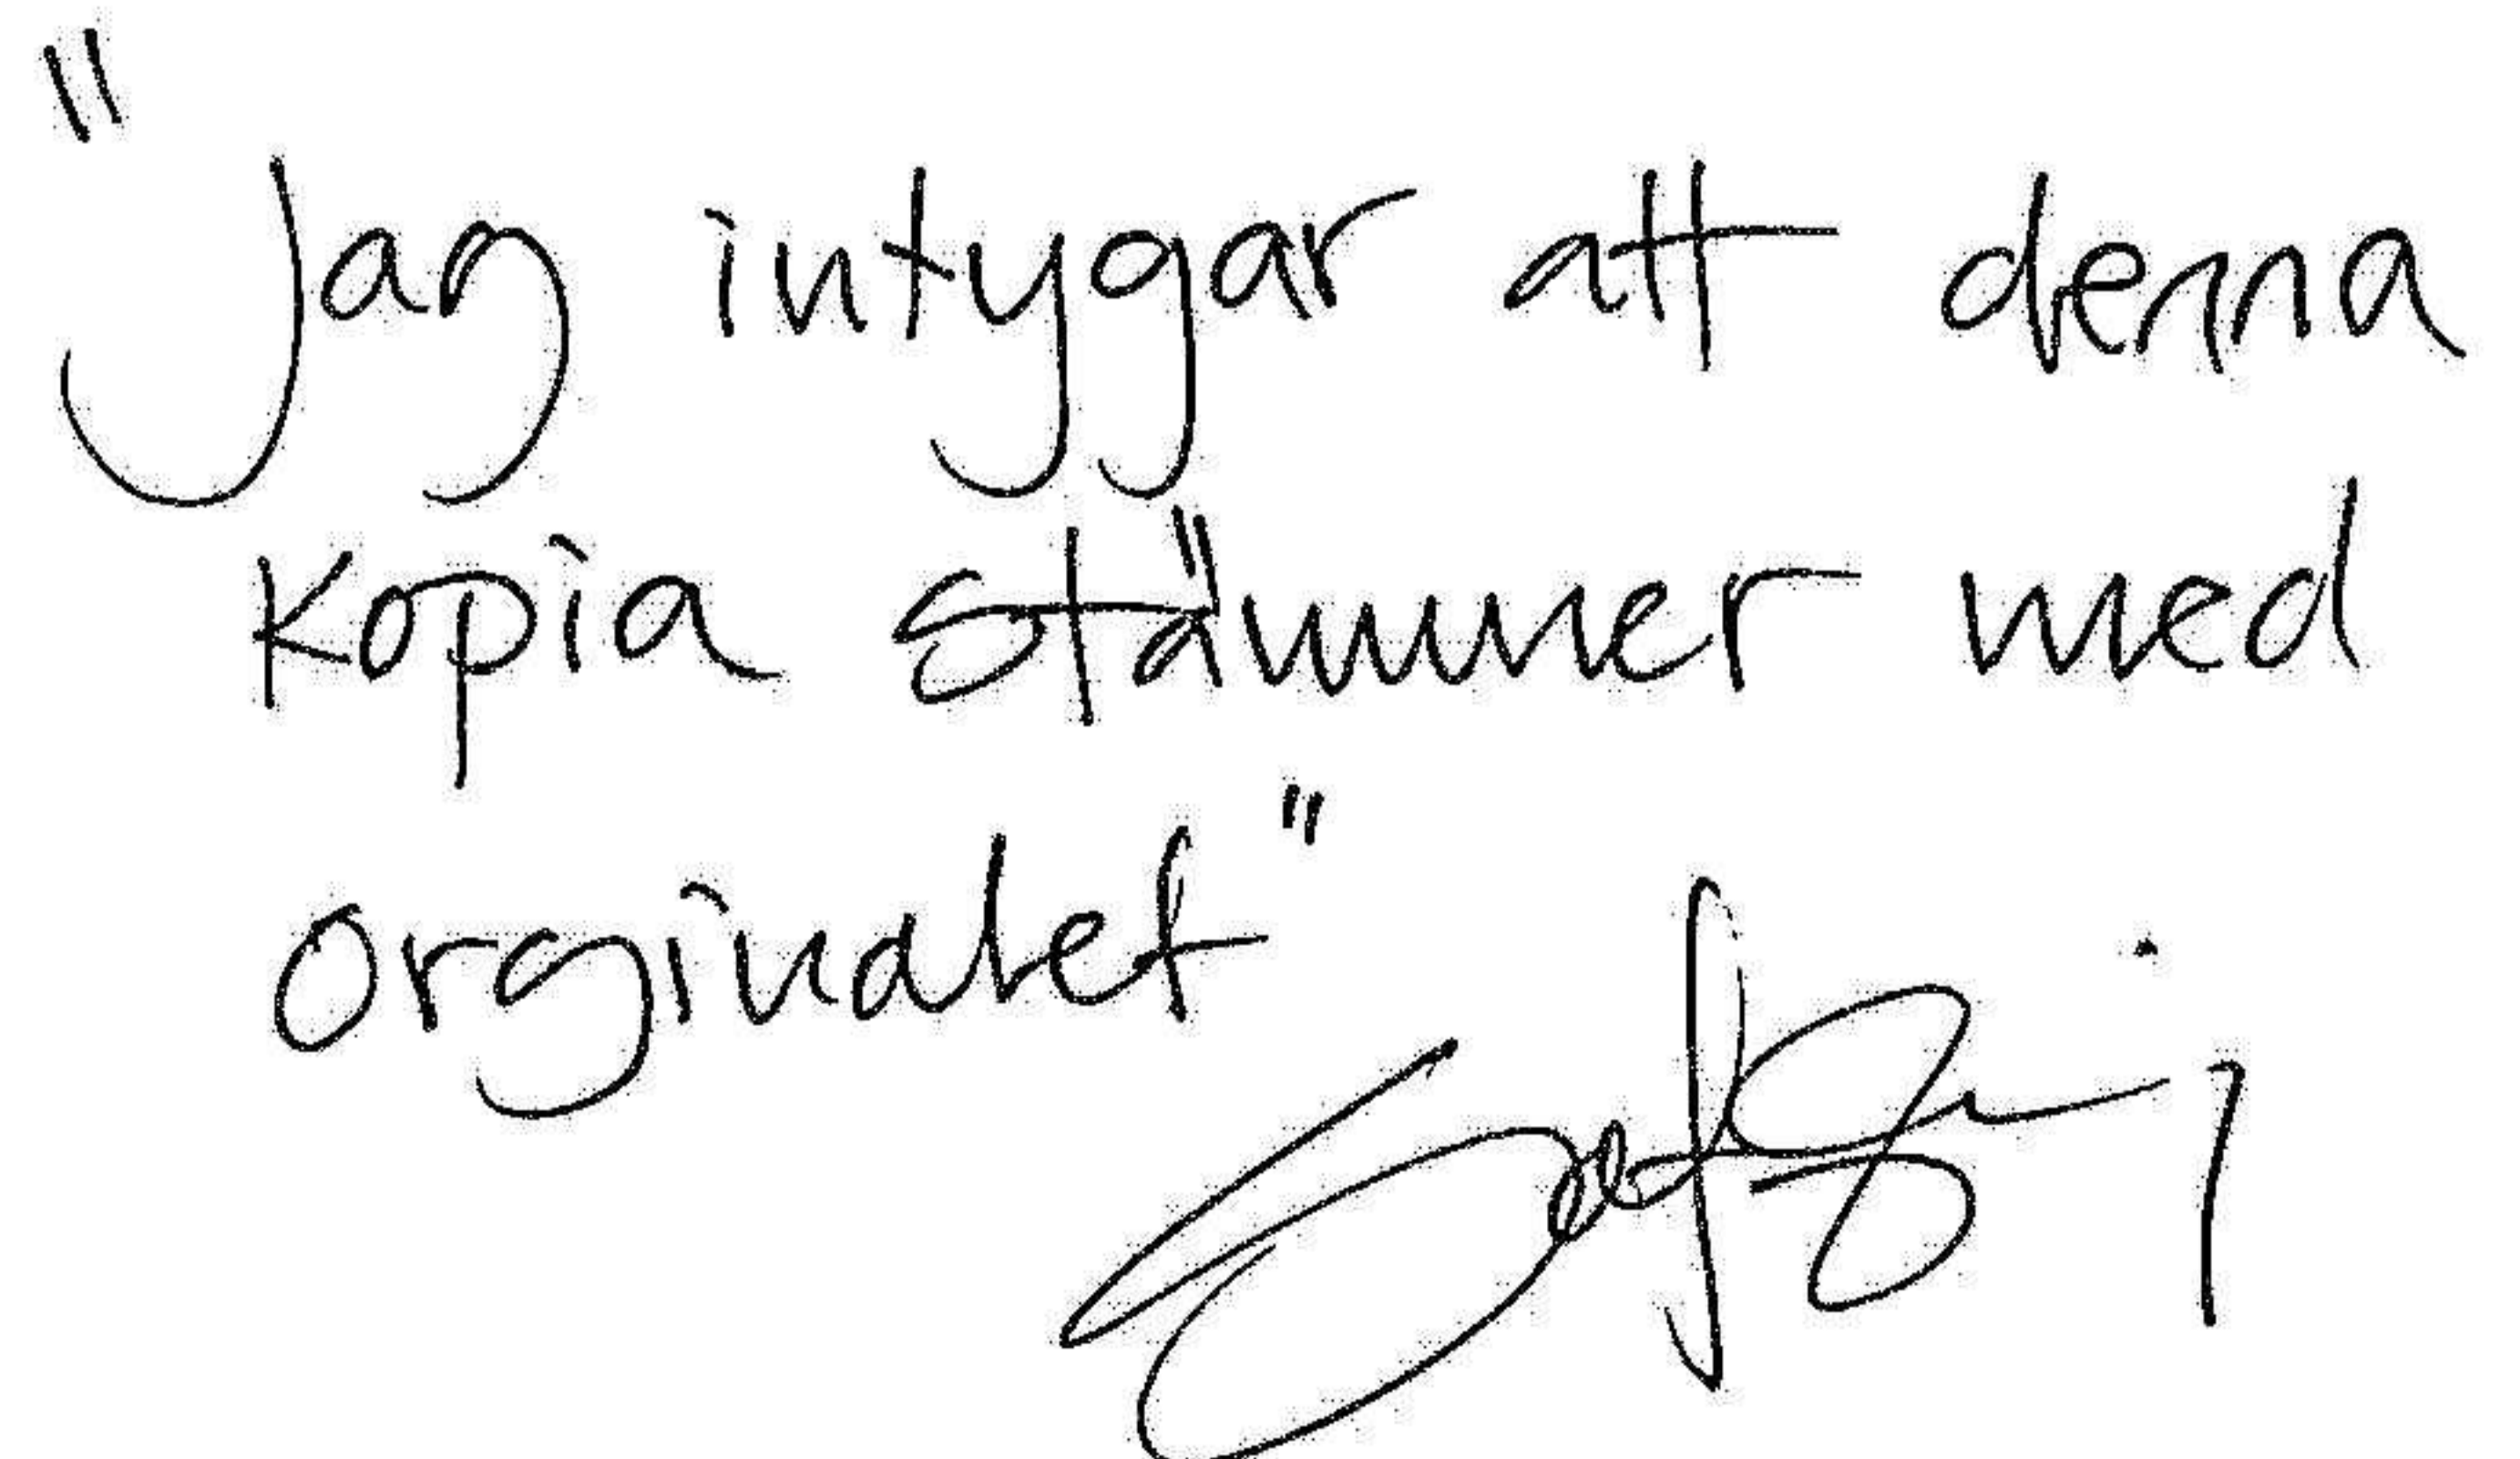 "Jag intygar att denna
kopia stämmer med
orginalet"